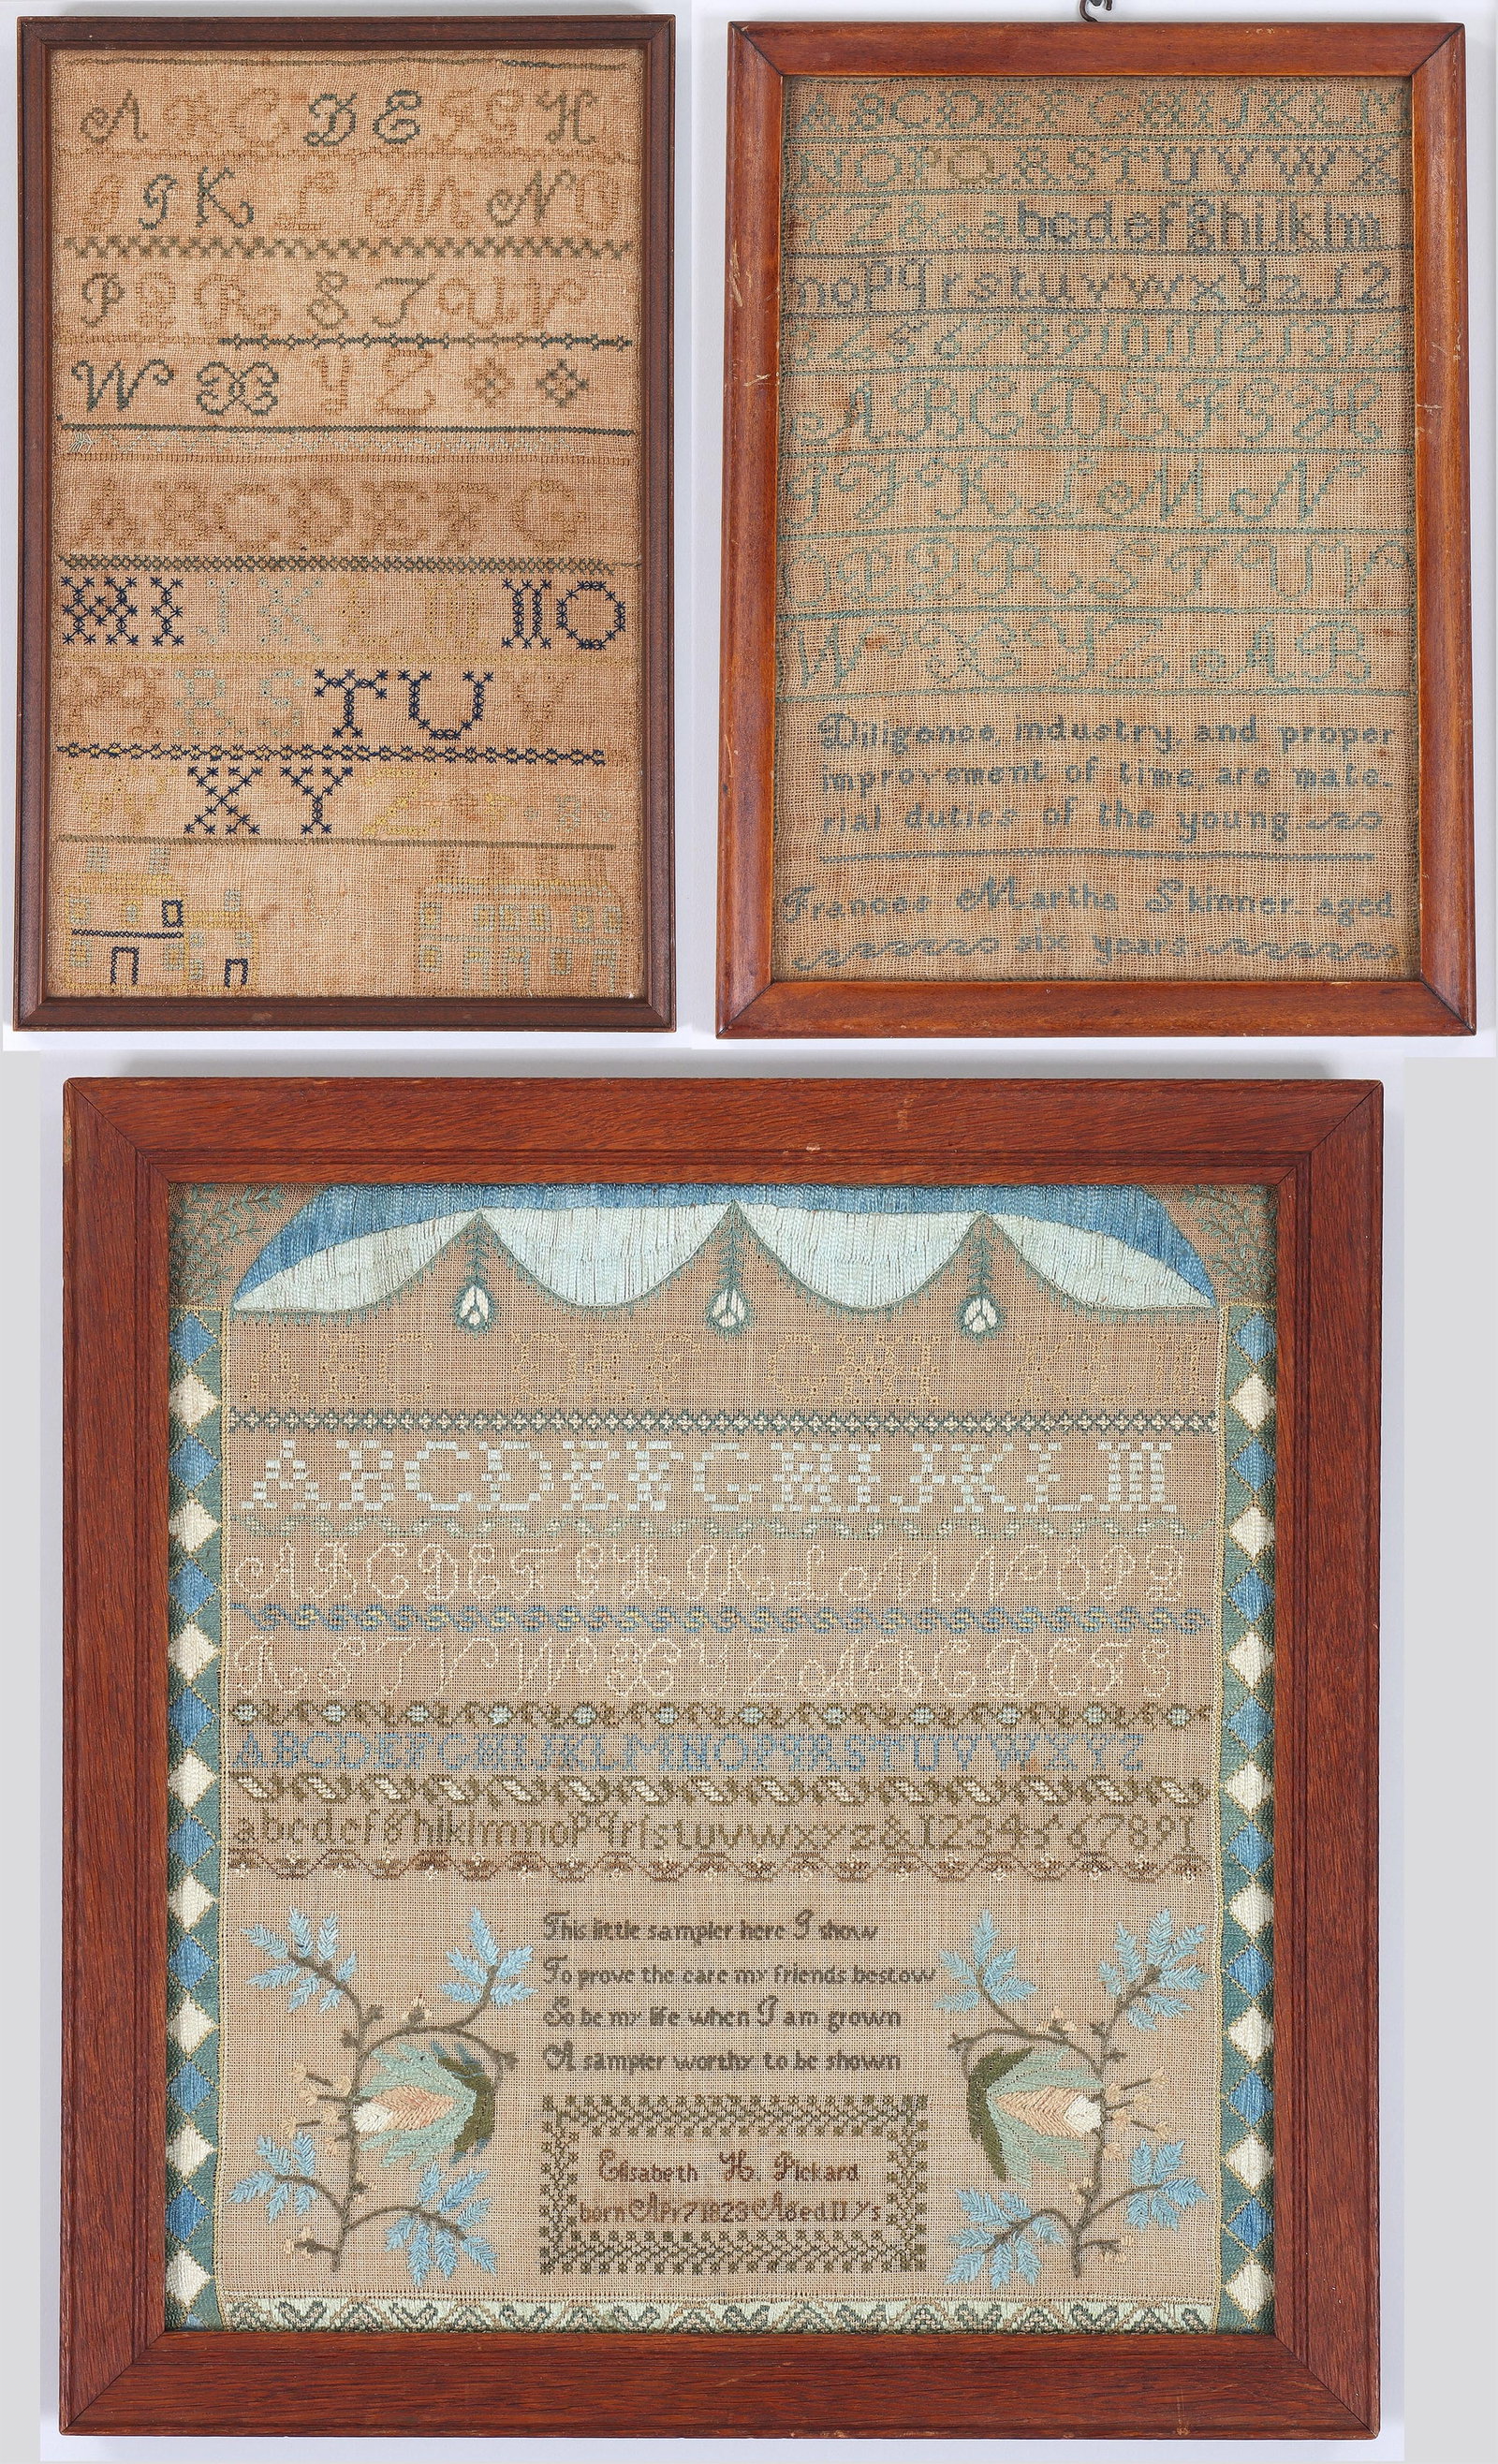 A B C D E F G H
I J K L M N O
P Q R S T U V
W X Y Z
A B C D E F G
H I J K L M N O
P Q R S T U V
W X Y Z
A B C D E F G H I J K L M
N O P Q R S T U V W X
Y Z & a b c d e f g h i j k l m
n o p q r s t u v w x y z 1 2
3 4 5 6 7 8 9 10 11 12 13 14
A B C D E F G H
I J K L M N
O P Q R S T U V
W X Y Z A B
Diligence industry and proper
improvement of time are mate-
rial duties of the young
Frances Martha Skinner aged
six years
A B C D E F G H I K L M
A B C D E F G H I J K L M
A B C D E F G H I K L M N O P Q
R S T V W X Y Z A B C D E F G
A B C D E F G H I J K L M N O P Q R S T U V W X Y Z
a b c d e f g h i k l m n o p q r ſ s t u v w x y z & 1 2 3 4 5 6 7 8 9 1
This little sampler here I show
To prove the care my friends bestow
So be my life when I am grown
A sampler worthy to be shown
Elisabeth H. Pickard
born Apr 7 1823 Aged 11 Ys